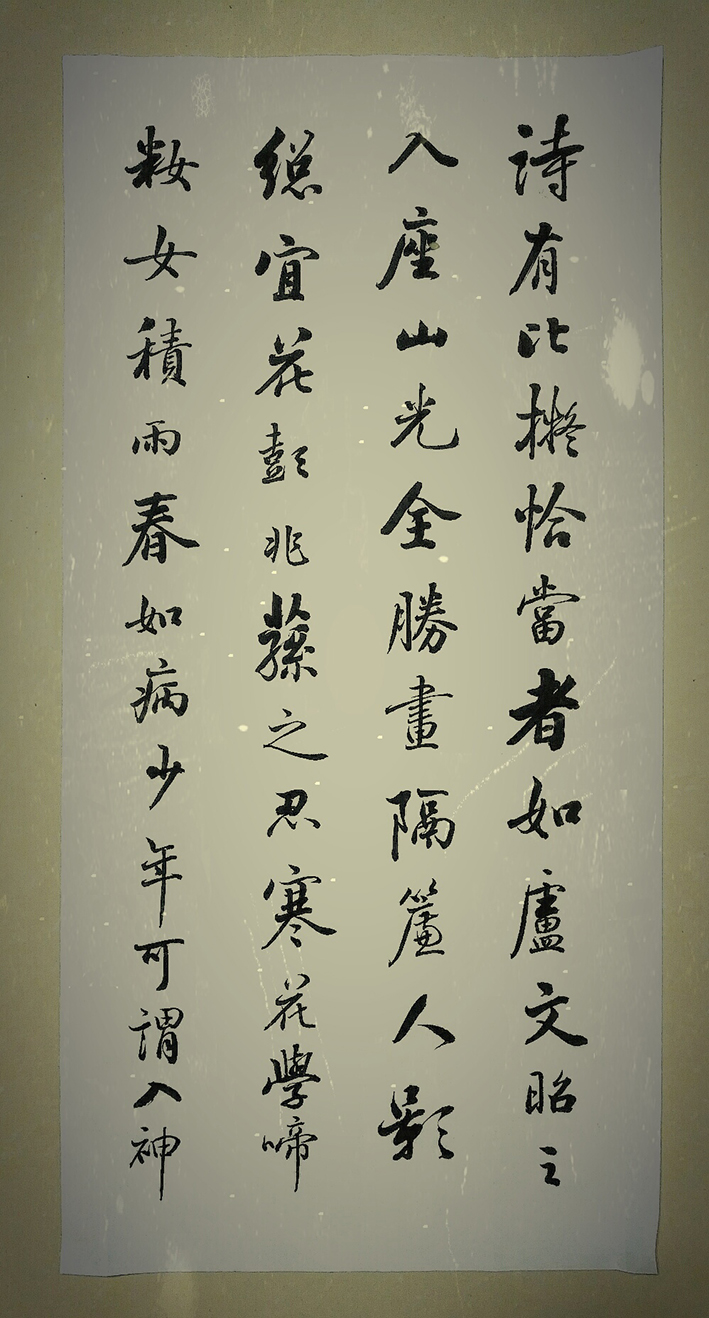 詩有比擬恰當者如盧文昭之
入座山光全勝畫隔簾人影
總宜花彭兆蓀之忍寒花學啼
粧女積雨春如病少年可謂入神